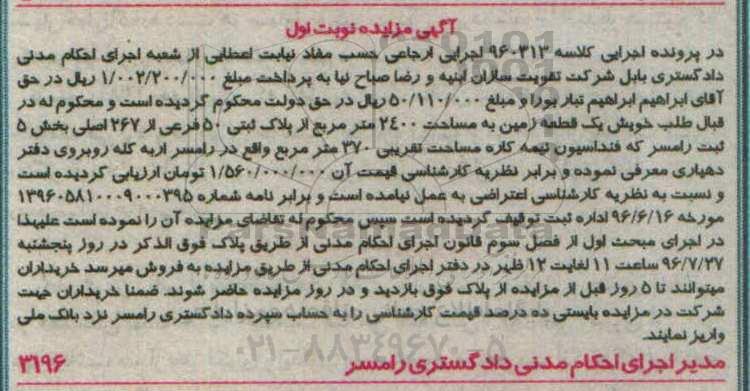 آگهی مزایده نوبت اول
در پرونده اجرایی کلاسه ۹۶۰۳۱۳ اجرایی ارجاعی حسب مفاد نیابت اعطایی از شعبه اجرای احکام مدنی
دادگستری بابل شرکت تقویت سازان ابنیه و رضا صباح نیا به پرداخت مبلغ ۱/۰۰۲/۲۰۰/۰۰۰ ریال در حق
آقای ابراهیم ابراهیم تبار بورا و مبلغ ۵۰/۱۱۰/۰۰۰ ریال در حق دولت محکوم گردیده است و محکوم له در
قبال طلب خویش یک قطعه زمین به مساحت ۲۴۰۰ متر مربع از پلاک ثبتی ۵۰ فرعی از ۲۶۷ اصلی بخش ۵
ثبت رامسر که فنداسیون نیمه کاره مساحت تقریبی ۳۷۰ متر مربع واقع در رامسر اربه کله روبروی دفتر
دهیاری معرفی نموده و برابر نظریه کارشناسی قیمت آن ۱/۵۶۰/۰۰۰/۰۰۰ تومان ارزیابی گردیده است
و نسبت به نظریه کارشناسی اعتراضی به عمل نیامده است و برابر نامه شماره ۱۳۹۶۰۵۸۱۰۰۰۹۰۰۰۳۹۵
مورخه ۹۶/۶/۱۶ اداره ثبت توقیف گردیده است سپس محکوم له تقاضای مزایده آن را نموده است علیهذا
در اجرای مبحث اول از فصل سوم قانون اجرای احکام مدنی از طریق پلاک فوق الذکر در روز پنجشنبه
۹۶/۷/۲۷ ساعت ۱۱ لغایت ۱۲ ظهر در دفتر اجرای احکام مدنی از طریق مزایده به فروش میرسد خریداران
میتوانند تا ۵ روز قبل از مزایده از پلاک فوق بازدید و در روز مزایده حاضر شوند. ضمنا خریداران جهت
شرکت در مزایده بایستی ده درصد قیمت کارشناسی را به حساب سپرده دادگستری رامسر نزد بانک ملی
واریز نمایند.
۰۲۱-۸۸۳۴۹۶۷۰-۵
مدیر اجرای احکام مدنی دادگستری رامسر ۳۱۹۶